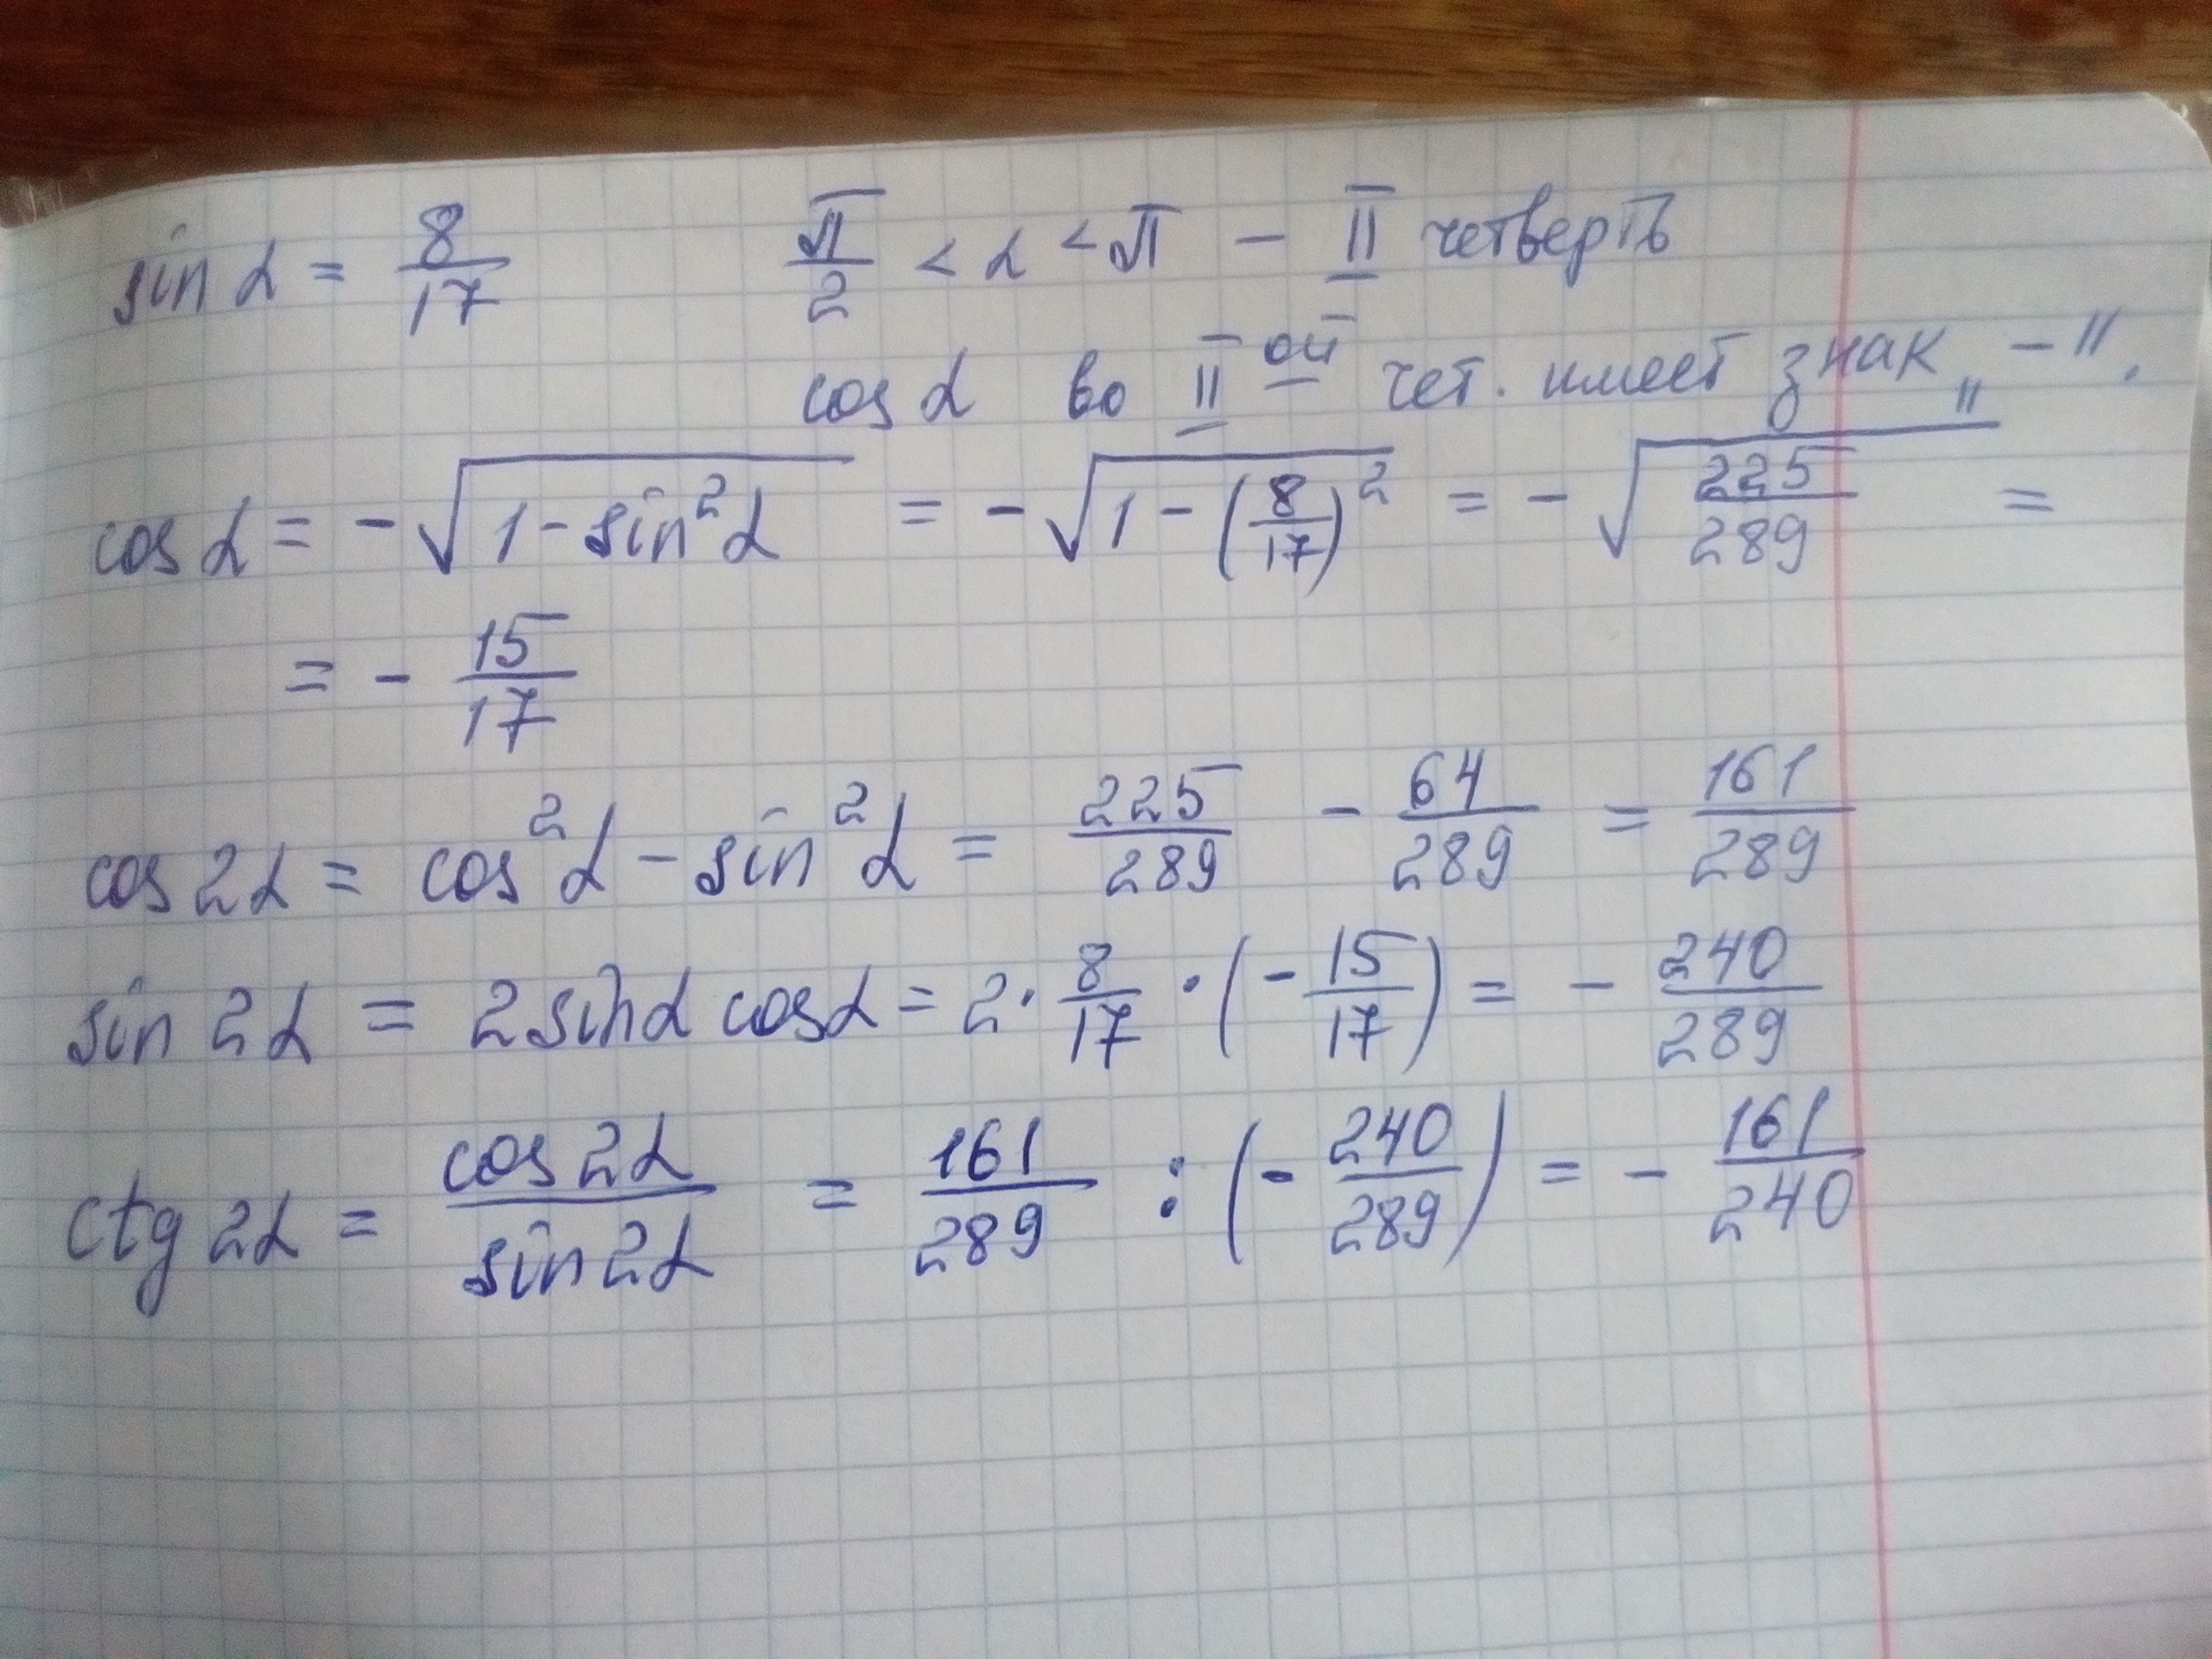 sin α = 8/17 π/2 < α < π – II четверть
cos α во II ой чет. имеет знак „ – ".
cos α = -√(1 - sin²α) = -√(1 - (8/17)²) = -√(225/289) =
= - 15/17
cos 2α = cos²α - sin²α = 225/289 - 64/289 = 161/289
sin 2α = 2 sin α cos α = 2 · 8/17 · (- 15/17) = - 240/289
ctg 2α = cos 2α / sin 2α = 161/289 : (- 240/289) = - 161/240